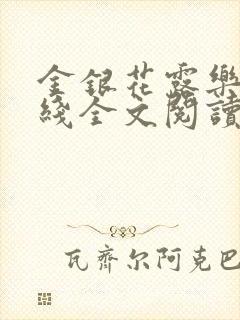 金银花露樂
綫全文閱讀
瓦齊尔阿克巴